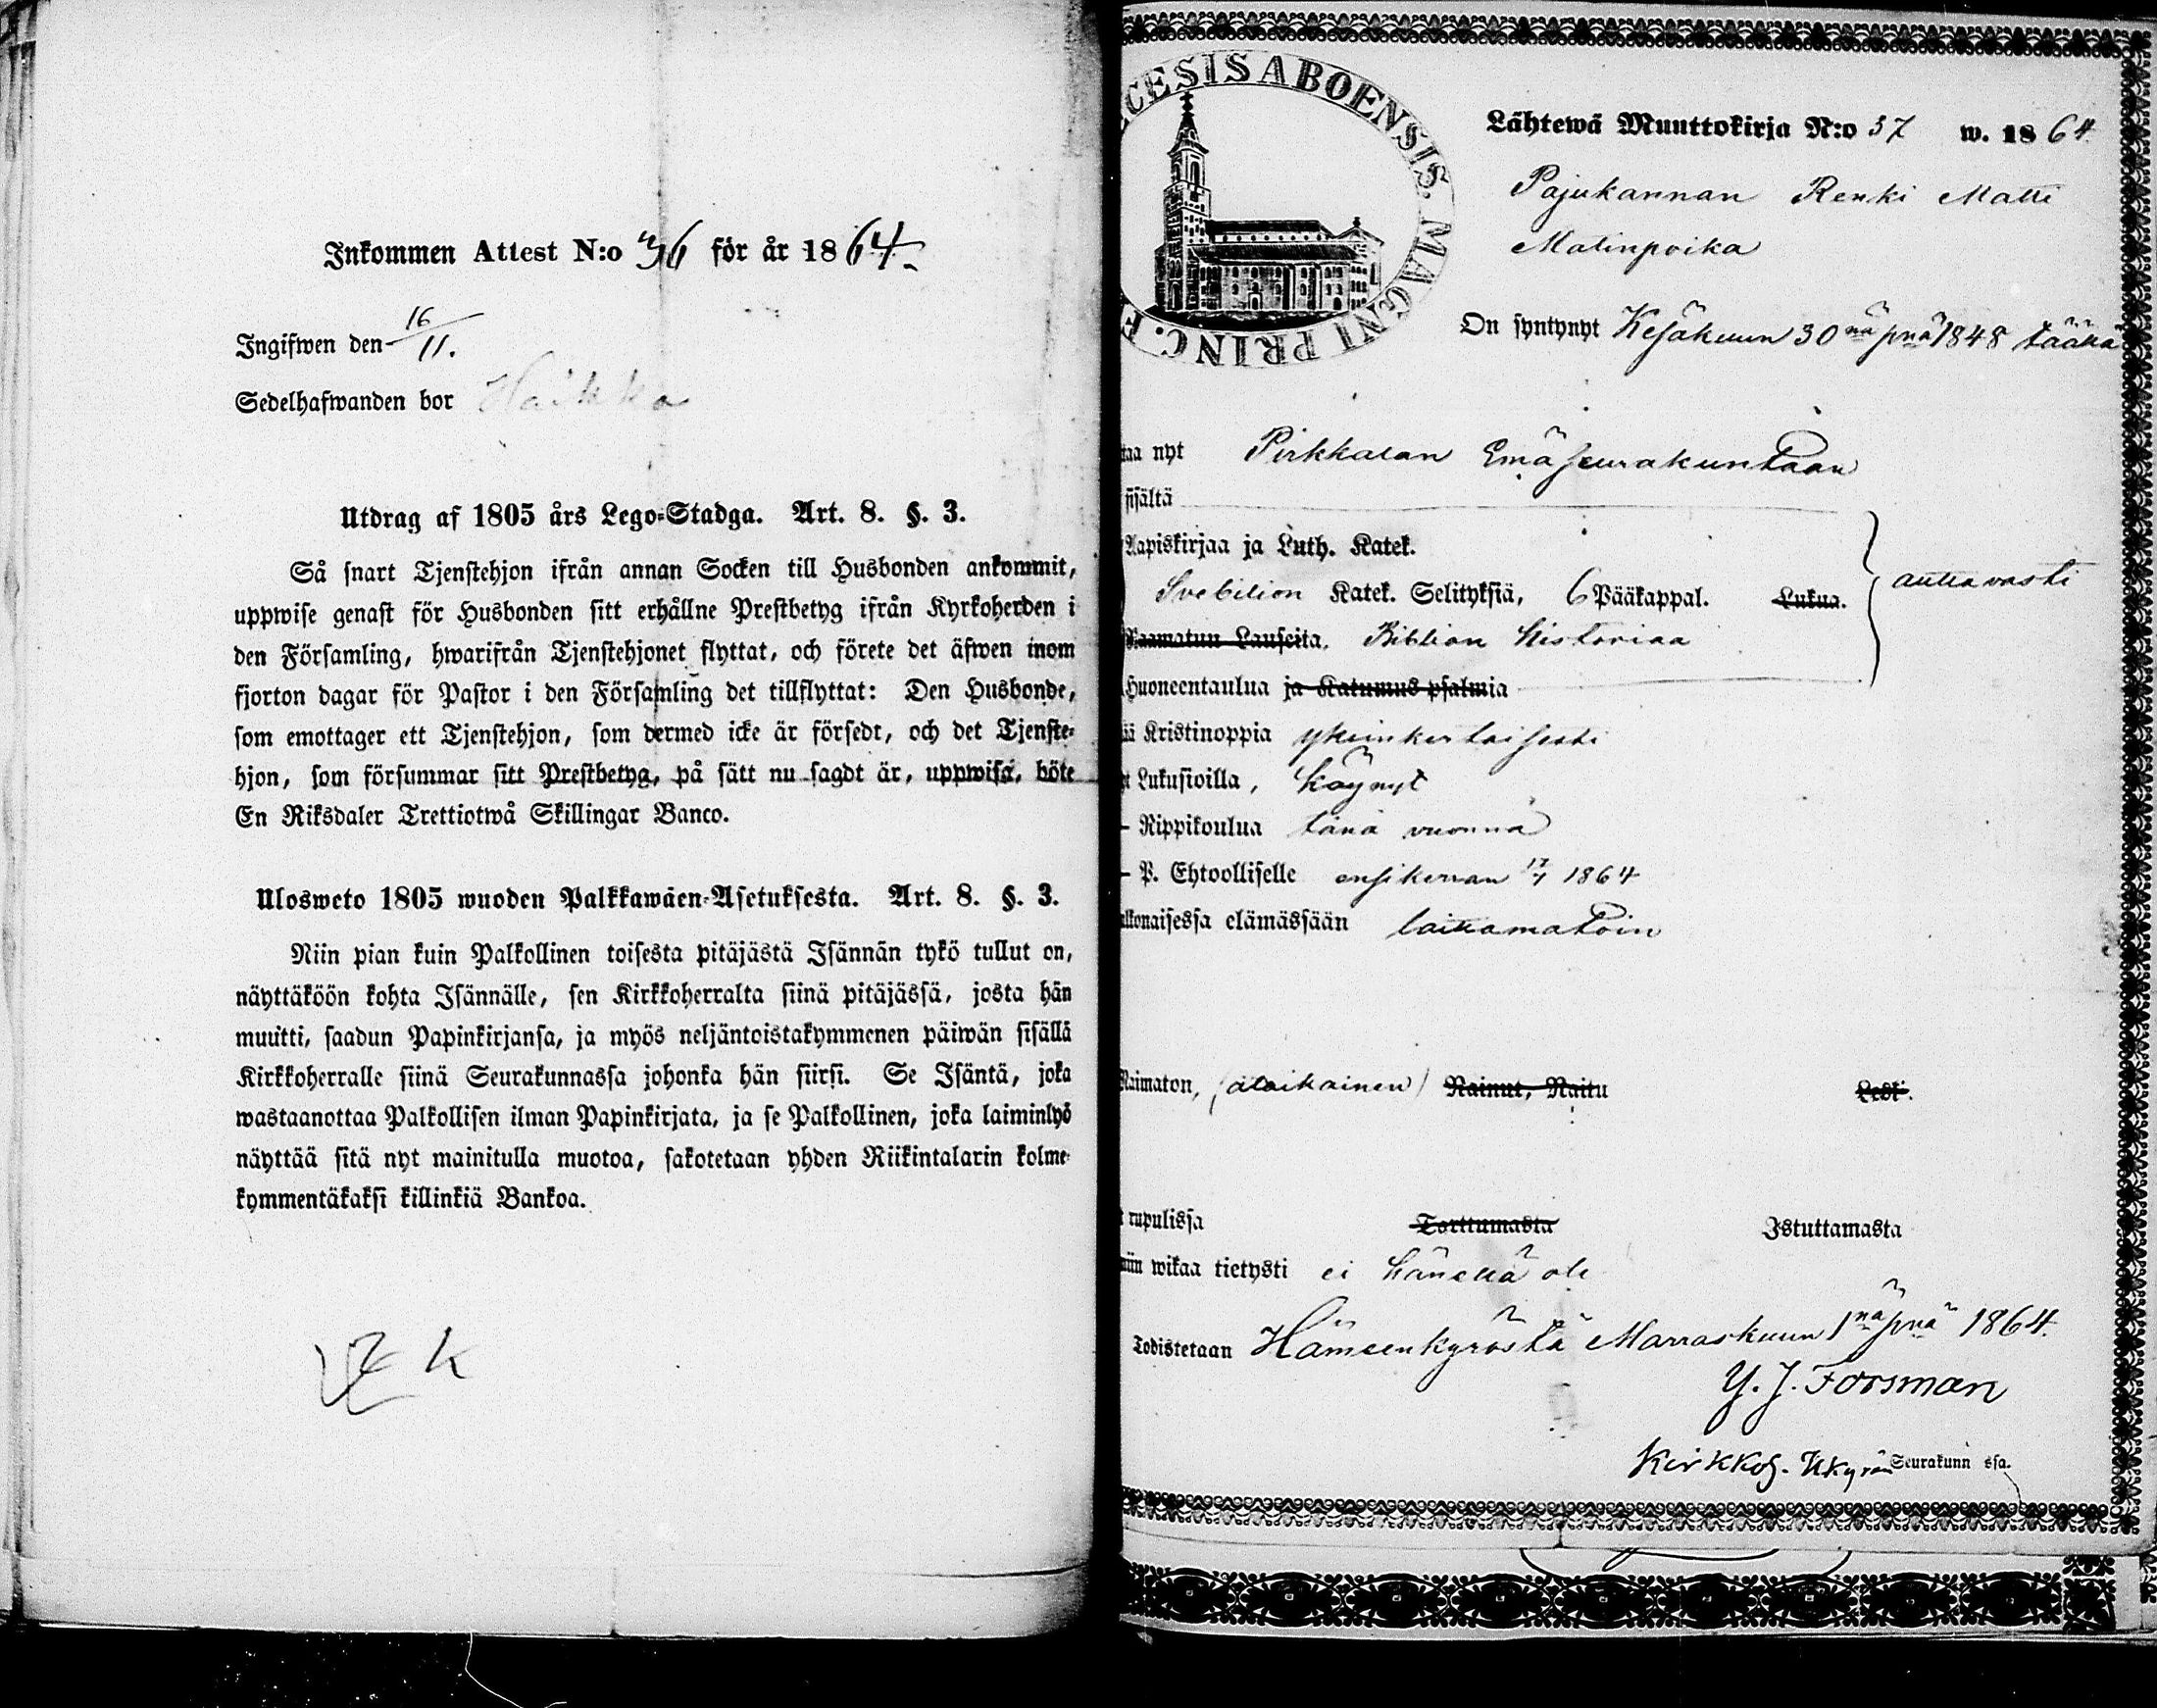 Inkommen Attest N:o 36 för år 1864.
Ingifwen den 16/11.
Sedelhafwanden bor Haikka
Utdrag af 1805 års Lego-Stadga. Art. 8. §. 3.
Så snart Tjenstehjon ifrån annan Socken till Husbonden ankommit,
uppwise genast för Husbonden sitt erhållne Prestbetyg ifrån Kyrkoherden i
den Församling, hwarifrån Tjenstehjonet flyttat, och förete det äfwen inom
fjorton dagar för Pastor i den Församling det tillflyttat: Den Husbonde,
som emottager ett Tjenstehjon, som dermed icke är försedt, och det Tjenste-
hjon, som försummar sitt Prestbetyg, på sätt nu sagdt är, uppwisa, böte
En Riksdaler Trettiotwå Skillingar Banco.
Ulosweto 1805 wuoden Palkkawäen-Asetuksesta. Art. 8. §. 3.
Niin pian kuin Palkollinen toisesta pitäjästä Isännän tykö tullut on,
näyttäköön kohta Isännälle, sen Kirkkoherralta siinä pitäjässä, josta hän
muutti, saadun Papinkirjansa, ja myös neljäntoistakymmenen päiwän sisällä
Kirkkoherralle siinä Seurakunnassa johonka hän siirsi. Se Isäntä, joka
wastaanottaa Palkollisen ilman Papinkirjata, ja se Palkollinen, joka laiminlyö
näyttää sitä nyt mainitulla muotoa, sakotetaan yhden Riikintalarin kolme-
kymmentäkaksi killinkiä Bankoa.
CESIS ABOENSIS. MAGNI PRINC. F
Lähtewä Muuttokirja N:o 37 w. 1864.
Pajukannan Renki Matti
Matinpoika
On syntynyt Kesäkuun 30 nä pnä 1848 täällä
taa nyt Pirkkalan Emäseurakuntaan
sisältä
Aapiskirjaa ja Luth. Katek.
Svebilion Katek. Selityksiä, 6 Pääkappal. Lukua. auttavasti
Raamatun Lauseita. Biblian Historiaa
Huoneentaulua ja Katumus psalmia
iä Kristinoppia yksinkertaisesti
t Lukusioilla, käynyt
- Rippikoulua tänä vuonna
- P. Ehtoolliselle ensikerran 17/7 1864
ulkonaisessa elämässään laittamatoin
Naimaton, (alaikäinen) Nainut, Naitu Leski.
t rupulissa Tarttumasta Istuttamasta
niin wikaa tietysti ei hänellä ole
Todistetaan Hämeenkyröstä Marraskuun 1 nä pnä 1864.
Y. J. Forsman
Kirkkoh. Hkyrön Seurakunn ssa.